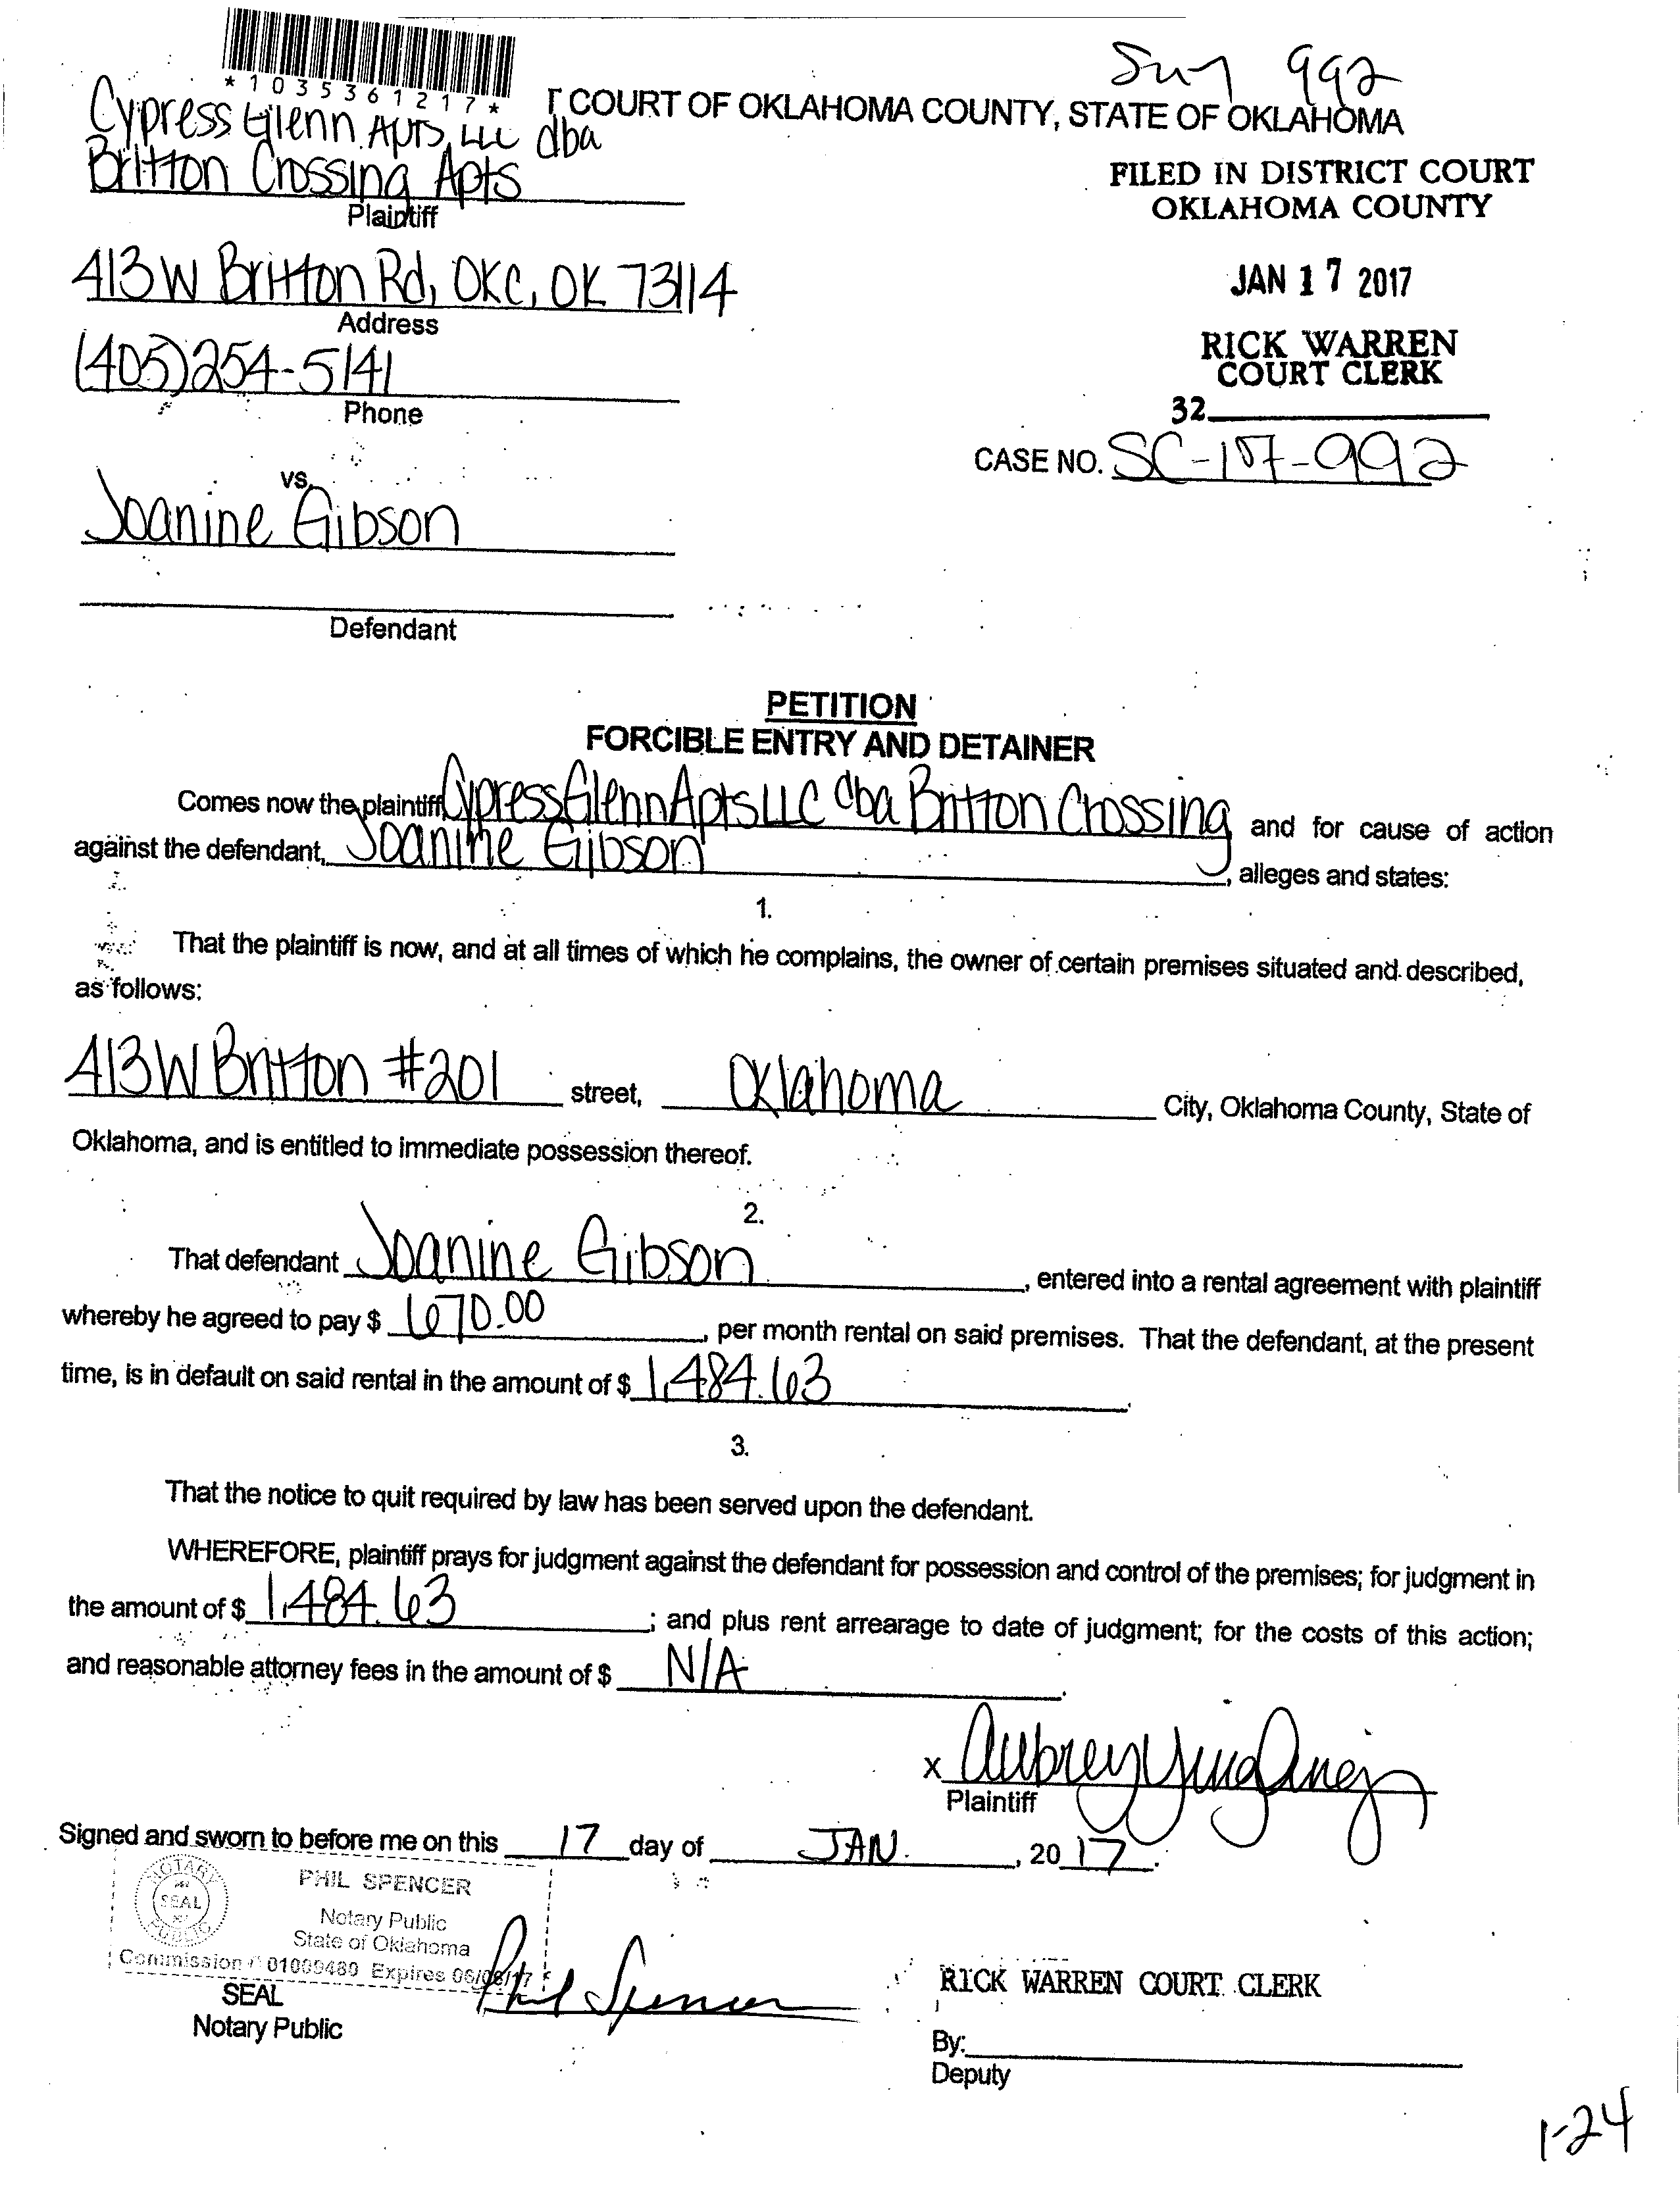 *1035361217*
Sm 992
T COURT OF OKLAHOMA COUNTY, STATE OF OKLAHOMA
Cypress Glenn Apts, LLC dba
Britton Crossing Apts
Plaintiff
FILED IN DISTRICT COURT
OKLAHOMA COUNTY
413 W Britton Rd, OKC, OK 73114
Address
JAN 17 2017
(405)254-5141
Phone
RICK WARREN
COURT CLERK
32
CASE NO. SC-17-992
vs.
Joanine Gibson
Defendant
PETITION
FORCIBLE ENTRY AND DETAINER
Comes now the plaintiff Cypress Glenn Apts LLC dba Britton Crossing and for cause of action
against the defendant, Joanine Gibson, alleges and states:
1.
That the plaintiff is now, and at all times of which he complains, the owner of certain premises situated and described,
as follows:
413 W Britton #201 street, Oklahoma City, Oklahoma County, State of
Oklahoma, and is entitled to immediate possession thereof.
2.
That defendant Joanine Gibson, entered into a rental agreement with plaintiff
whereby he agreed to pay $ 670.00, per month rental on said premises. That the defendant, at the present
time, is in default on said rental in the amount of $ 1,484.63.
3.
That the notice to quit required by law has been served upon the defendant.
WHEREFORE, plaintiff prays for judgment against the defendant for possession and control of the premises; for judgment in
the amount of $ 1,484.63; and plus rent arrearage to date of judgment; for the costs of this action;
and reasonable attorney fees in the amount of $ N/A.
x Aubrey
Plaintiff
Signed and sworn to before me on this 17 day of JAN., 20 17.
NOTARY SEAL PUBLIC
PHIL SPENCER
Notary Public
State of Oklahoma
Commission # 01009480 Expires 06/08/17
Phil Spencer
SEAL
Notary Public
RICK WARREN COURT CLERK
By:
Deputy
1-24